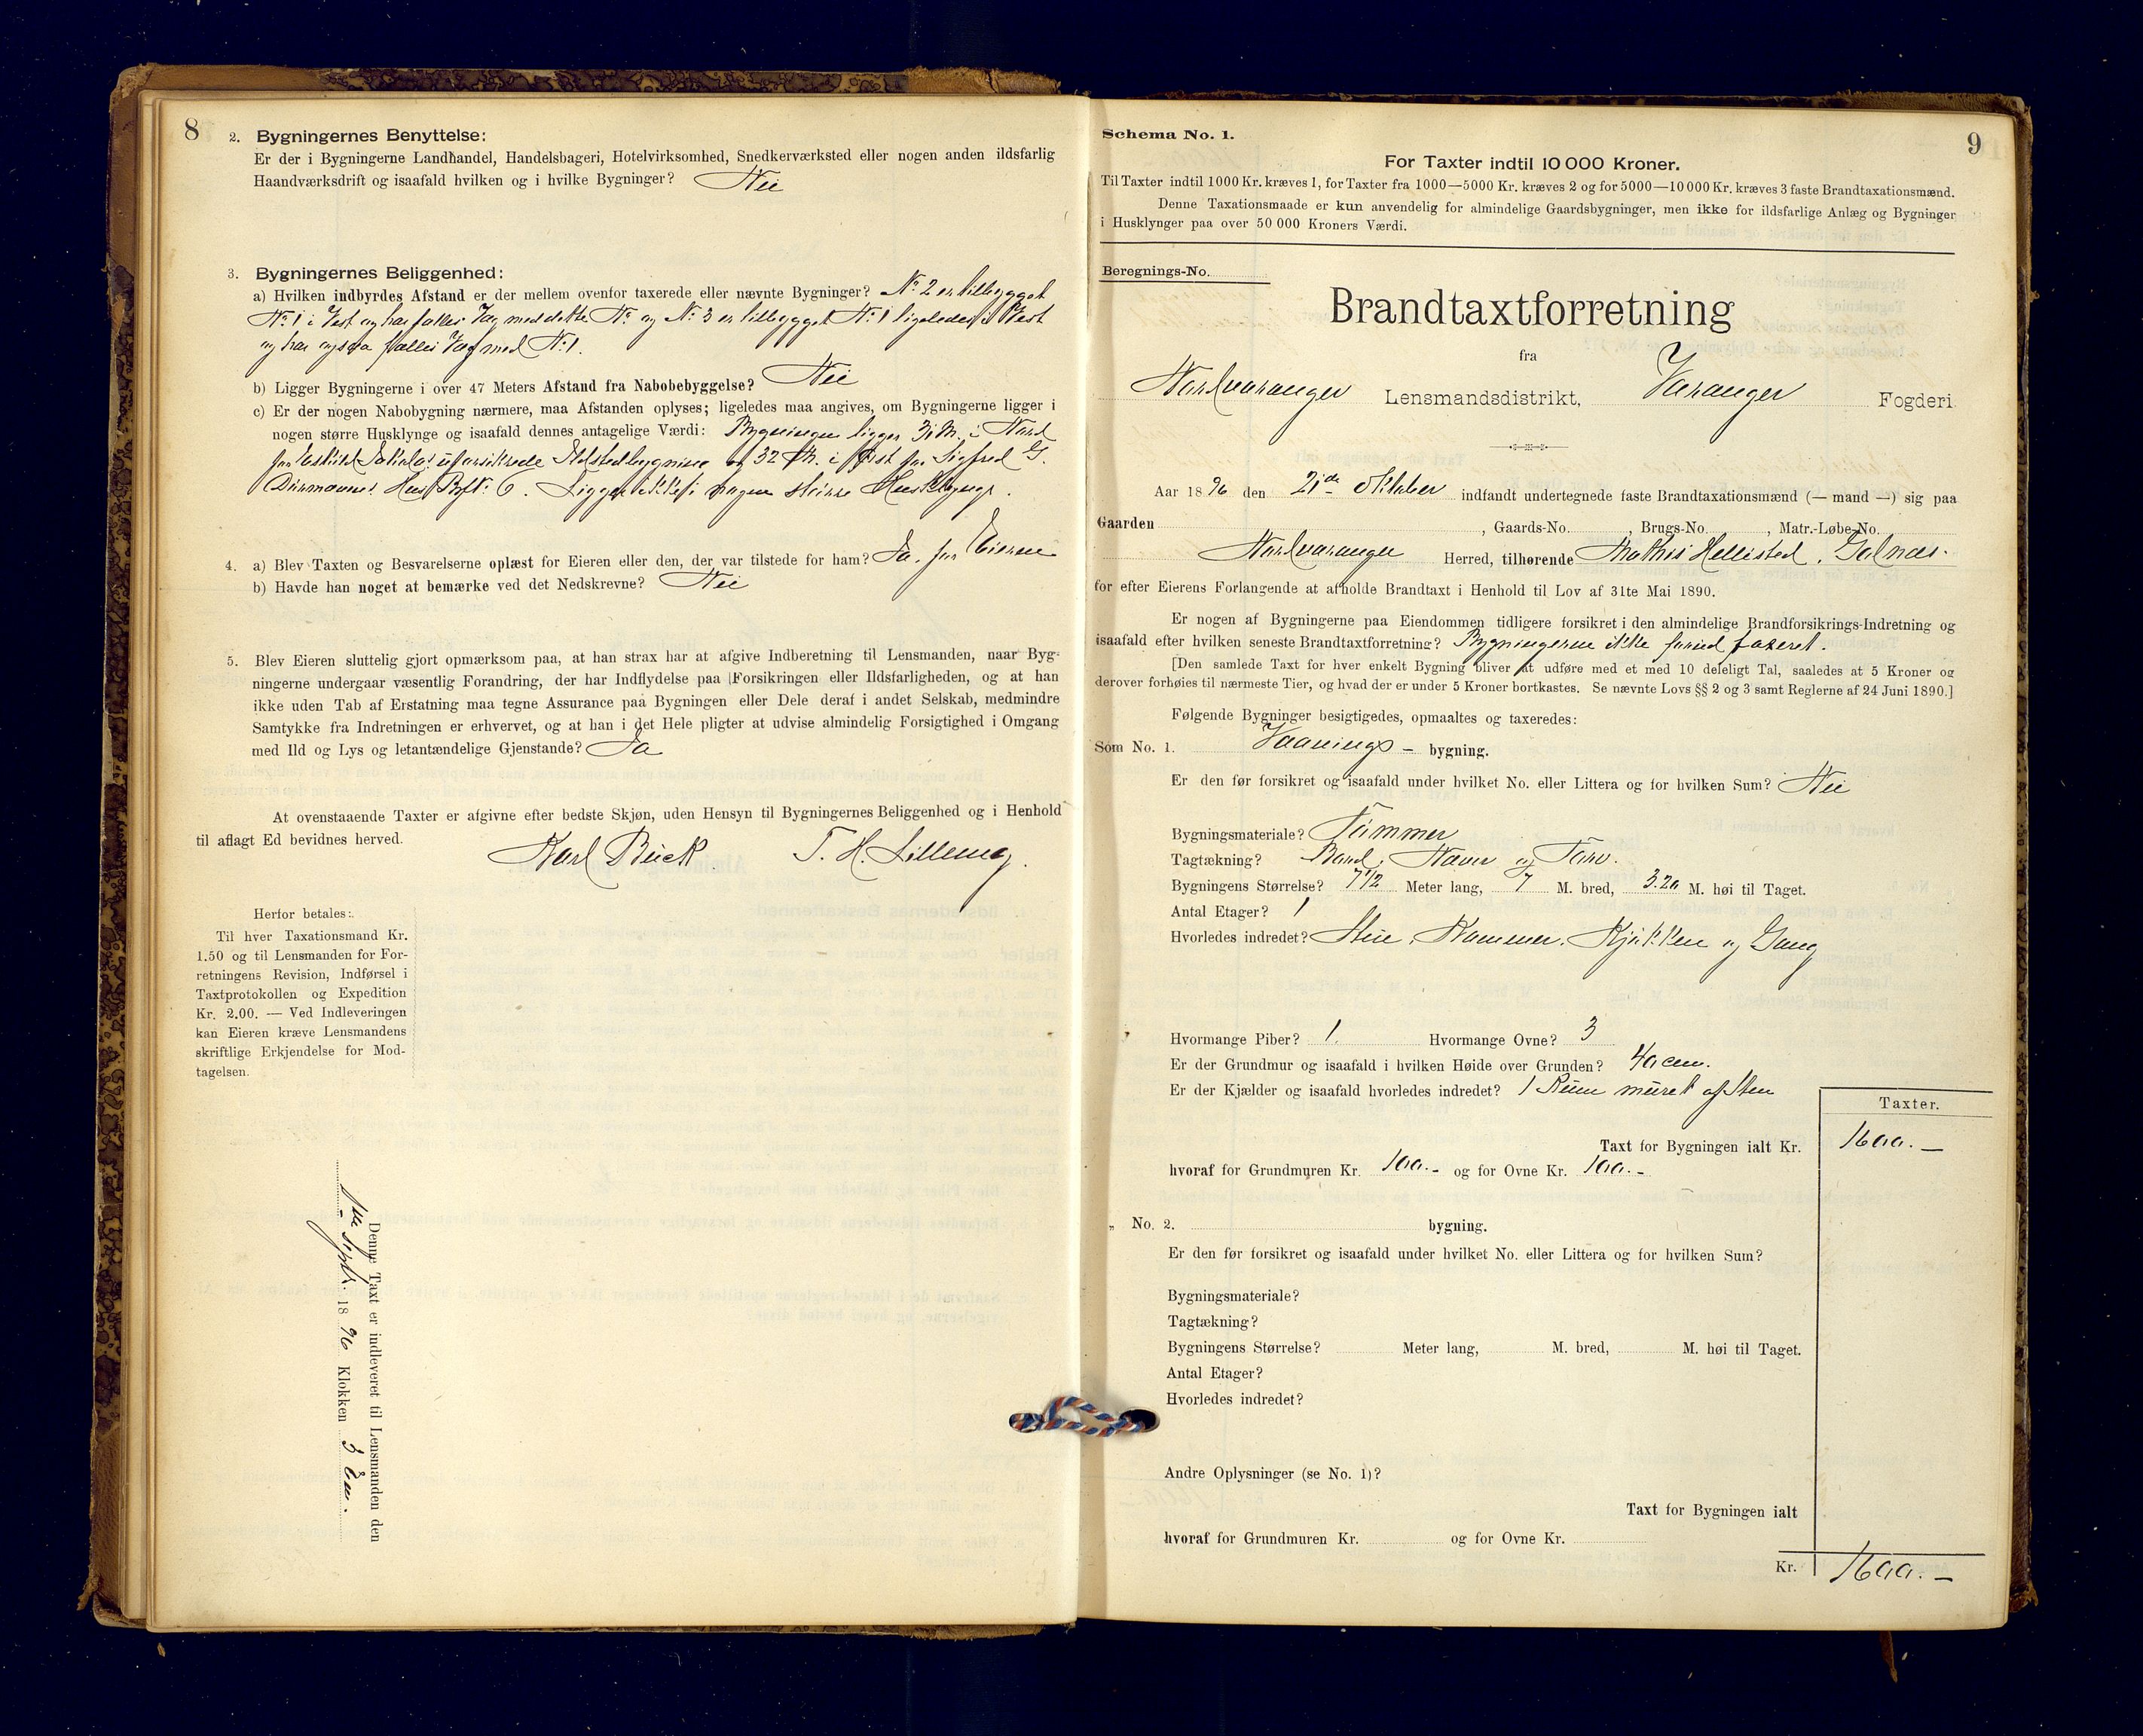 8
2. Bygningernes Benyttelse:
Er der i Bygningerne Landhandel, Handelsbageri, Hotelvirksomhed, Snedkerværksted eller nogen anden ildsfarlig
Haandværksdrift og isaafald hvilken og i hvilke Bygninger? Nei
3. Bygningernes Beliggenhed:
a) Hvilken indbyrdes Afstand er der mellem ovenfor taxerede eller nævnte Bygninger? No 2 er tilbygget
No 1 i Vest og har fælles Væg med dette No og No 3 er tilbygget No 1 ligeledes i Vest
og har ogsaa fælles Væg med No 1.
b) Ligger Bygningerne i over 47 Meters Afstand fra Nabobebyggelse? Nei
c) Er der nogen Nabobygning nærmere, maa Afstanden oplyses; ligeledes maa angives, om Bygningerne ligger i
nogen større Husklynge og isaafald dennes antagelige Værdi: Bygningen ligger M. i Nord
for uforsikrede Ildstedbygning og 32 M. i for Sigfred G.
Hus No 6. Ligger ikke i nogen större Husklynge.
4. a) Blev Taxten og Besvarelserne oplæst for Eieren eller den, der var tilstede for ham? Ja, for Eieren
b) Havde han noget at bemærke ved det Nedskrevne? Nei
5. Blev Eieren sluttelig gjort opmærksom paa, at han strax har at afgive Indberetning til Lensmanden, naar Byg-
ningerne undergaar væsentlig Forandring, der har Indflydelse paa Forsikringen eller Ildsfarligheden, og at han
ikke uden Tab af Erstatning maa tegne Assurance paa Bygningen eller Dele deraf i andet Selskab, medmindre
Samtykke fra Indretningen er erhvervet, og at han i det Hele pligter at udvise almindelig Forsigtighed i Omgang
med Ild og Lys og letantændelige Gjenstande? Ja
At ovenstaaende Taxter er afgivne efter bedste Skjøn, uden Hensyn til Bygningernes Beliggenhed og i Henhold
til aflagt Ed bevidnes herved.
Karl Buck T. H. Lilleeng
Herfor betales:
Til hver Taxationsmand Kr.
1.50 og til Lensmanden for For-
retningens Revision, Indførsel i
Taxtprotokollen og Expedition
Kr. 2.00. — Ved Indleveringen
kan Eieren kræve Lensmandens
skriftlige Erkjendelse for Mod-
tagelsen.
Denne Taxt er indleveret til Lensmanden den
Septbr. 1896 Klokken 3 Em.
9
Schema No. 1.
For Taxter indtil 10 000 Kroner.
Til Taxter indtil 1000 Kr. kræves 1, for Taxter fra 1000—5000 Kr. kræves 2 og for 5000—10 000 Kr. kræves 3 faste Brandtaxationsmænd.
Denne Taxationsmaade er kun anvendelig for almindelige Gaardsbygninger, men ikke for ildsfarlige Anlæg og Bygninger
i Husklynger paa over 50 000 Kroners Værdi.
Beregnings-No.
Brandtaxtforretning
fra
Nordvaranger Lensmandsdistrikt, Varanger Fogderi
Aar 1896 den 21de Oktober indfandt undertegnede faste Brandtaxationsmænd (— mand —) sig paa
Gaarden , Gaards-No. , Brugs-No. , Matr.-Løbe-No.
Nordvaranger Herred, tilhørende Mathis Hellisted, Golnæs.
for efter Eierens Forlangende at afholde Brandtaxt i Henhold til Lov af 31te Mai 1890.
Er nogen af Bygningerne paa Eiendommen tidligere forsikret i den almindelige Brandforsikrings-Indretning og
isaafald efter hvilken seneste Brandtaxtforretning? Bygningerne ikke forud taxeret.
[Den samlede Taxt for hver enkelt Bygning bliver at udføre med et med 10 deleligt Tal, saaledes at 5 Kroner og
derover forhøies til nærmeste Tier, og hvad der er under 5 Kroner bortkastes. Se nævnte Lovs §§ 2 og 3 samt Reglerne af 24 Juni 1890.]
Følgende Bygninger besigtigedes, opmaaltes og taxeredes:
Som No. 1. Vaanings – bygning.
Er den før forsikret og isaafald under hvilket No. eller Littera og for hvilken Sum? Nei
Bygningsmateriale? Tömmer
Tagtækning? Bord, Næver og Torv.
Bygningens Størrelse? 7 1/2 Meter lang, 7 M. bred, 3.20 M. høi til Taget.
Antal Etager? 1
Hvorledes indredet? Stue, Kammer, Kjøkken og Gang
Hvormange Piber? 1. Hvormange Ovne? 3
Er der Grundmur og isaafald i hvilken Høide over Grunden? 40 cm.
Er der Kjælder og isaafald hvorledes indredet? 1 Rum muret af Sten
Taxter.
Taxt for Bygningen ialt Kr. 1600.–
hvoraf for Grundmuren Kr. 100.– og for Ovne Kr. 100.–
„ No. 2. bygning.
Er den før forsikret og isaafald under hvilket No. eller Littera og for hvilken Sum?
Bygningsmateriale?
Tagtækning?
Bygningens Størrelse? Meter lang, M. bred, M. høi til Taget.
Antal Etager?
Hvorledes indredet?
Andre Oplysninger (se No. 1)?
Taxt for Bygningen ialt
hvoraf for Grundmuren Kr. og for Ovne Kr.
Kr. 1600.–